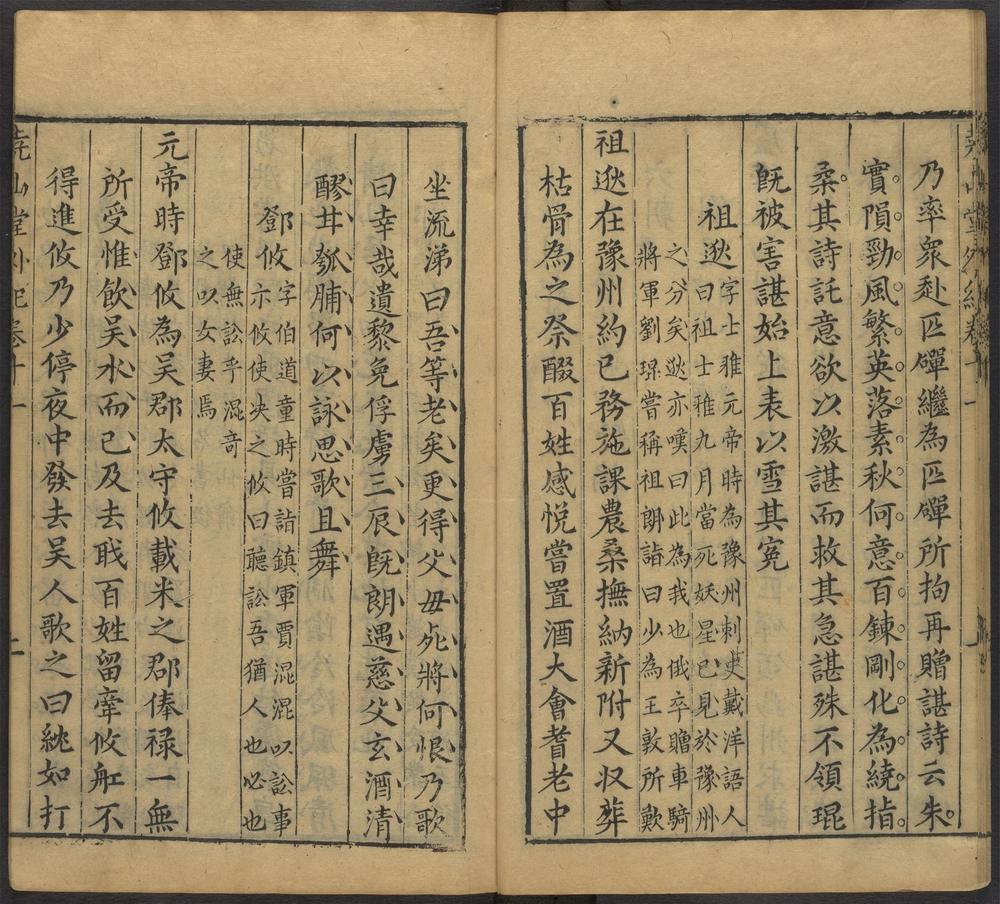 乃率衆赴匹磾繼為匹磾所拘再贈諶詩云朱
實隕勁風繁英落素秋何意百鍊剛化為繞指
柔其詩託意欲以激諶而救其急諶殊不領琨
旣被害諶始上表以雪其寃
祖逖字士雅元帝時為豫州刺史戴洋語人
曰祖士雅九月當死妖星已見於豫州
之分矣逖亦嘆曰此為我也俄卒贈車騎
將軍劉琨嘗稱祖朗詣曰少為王敦所歎
祖逖在豫州約已務施課農桑撫納新附又収葬
枯骨為之祭醊百姓感悅嘗置酒大會耆老中
坐流涕曰吾等老矣更得父母死將何恨乃歌
曰幸哉遺黎免俘虜三辰旣朗遇慈父玄酒清
醪甘瓠脯何以詠思歌且舞
鄧攸字伯道童時嘗詣鎮軍賈混混以訟事
示攸使决之攸曰聽訟吾猶人也必也
使無訟乎混竒
之以女妻焉
元帝時鄧攸為吴郡太守攸載米之郡俸禄一無
所受惟飲吴水而已及去戢百姓留牽攸舡不
得進攸乃少停夜中發去吴人歌之曰紞如打
堯山堂外紀卷十一
二